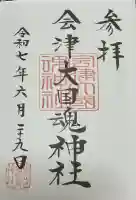 参拝
会津大国魂神社
令和七年六月二十九日